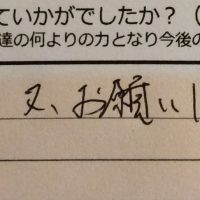 ていかがでしたか？（
達の何よりの力となり今後の
又、お願いし